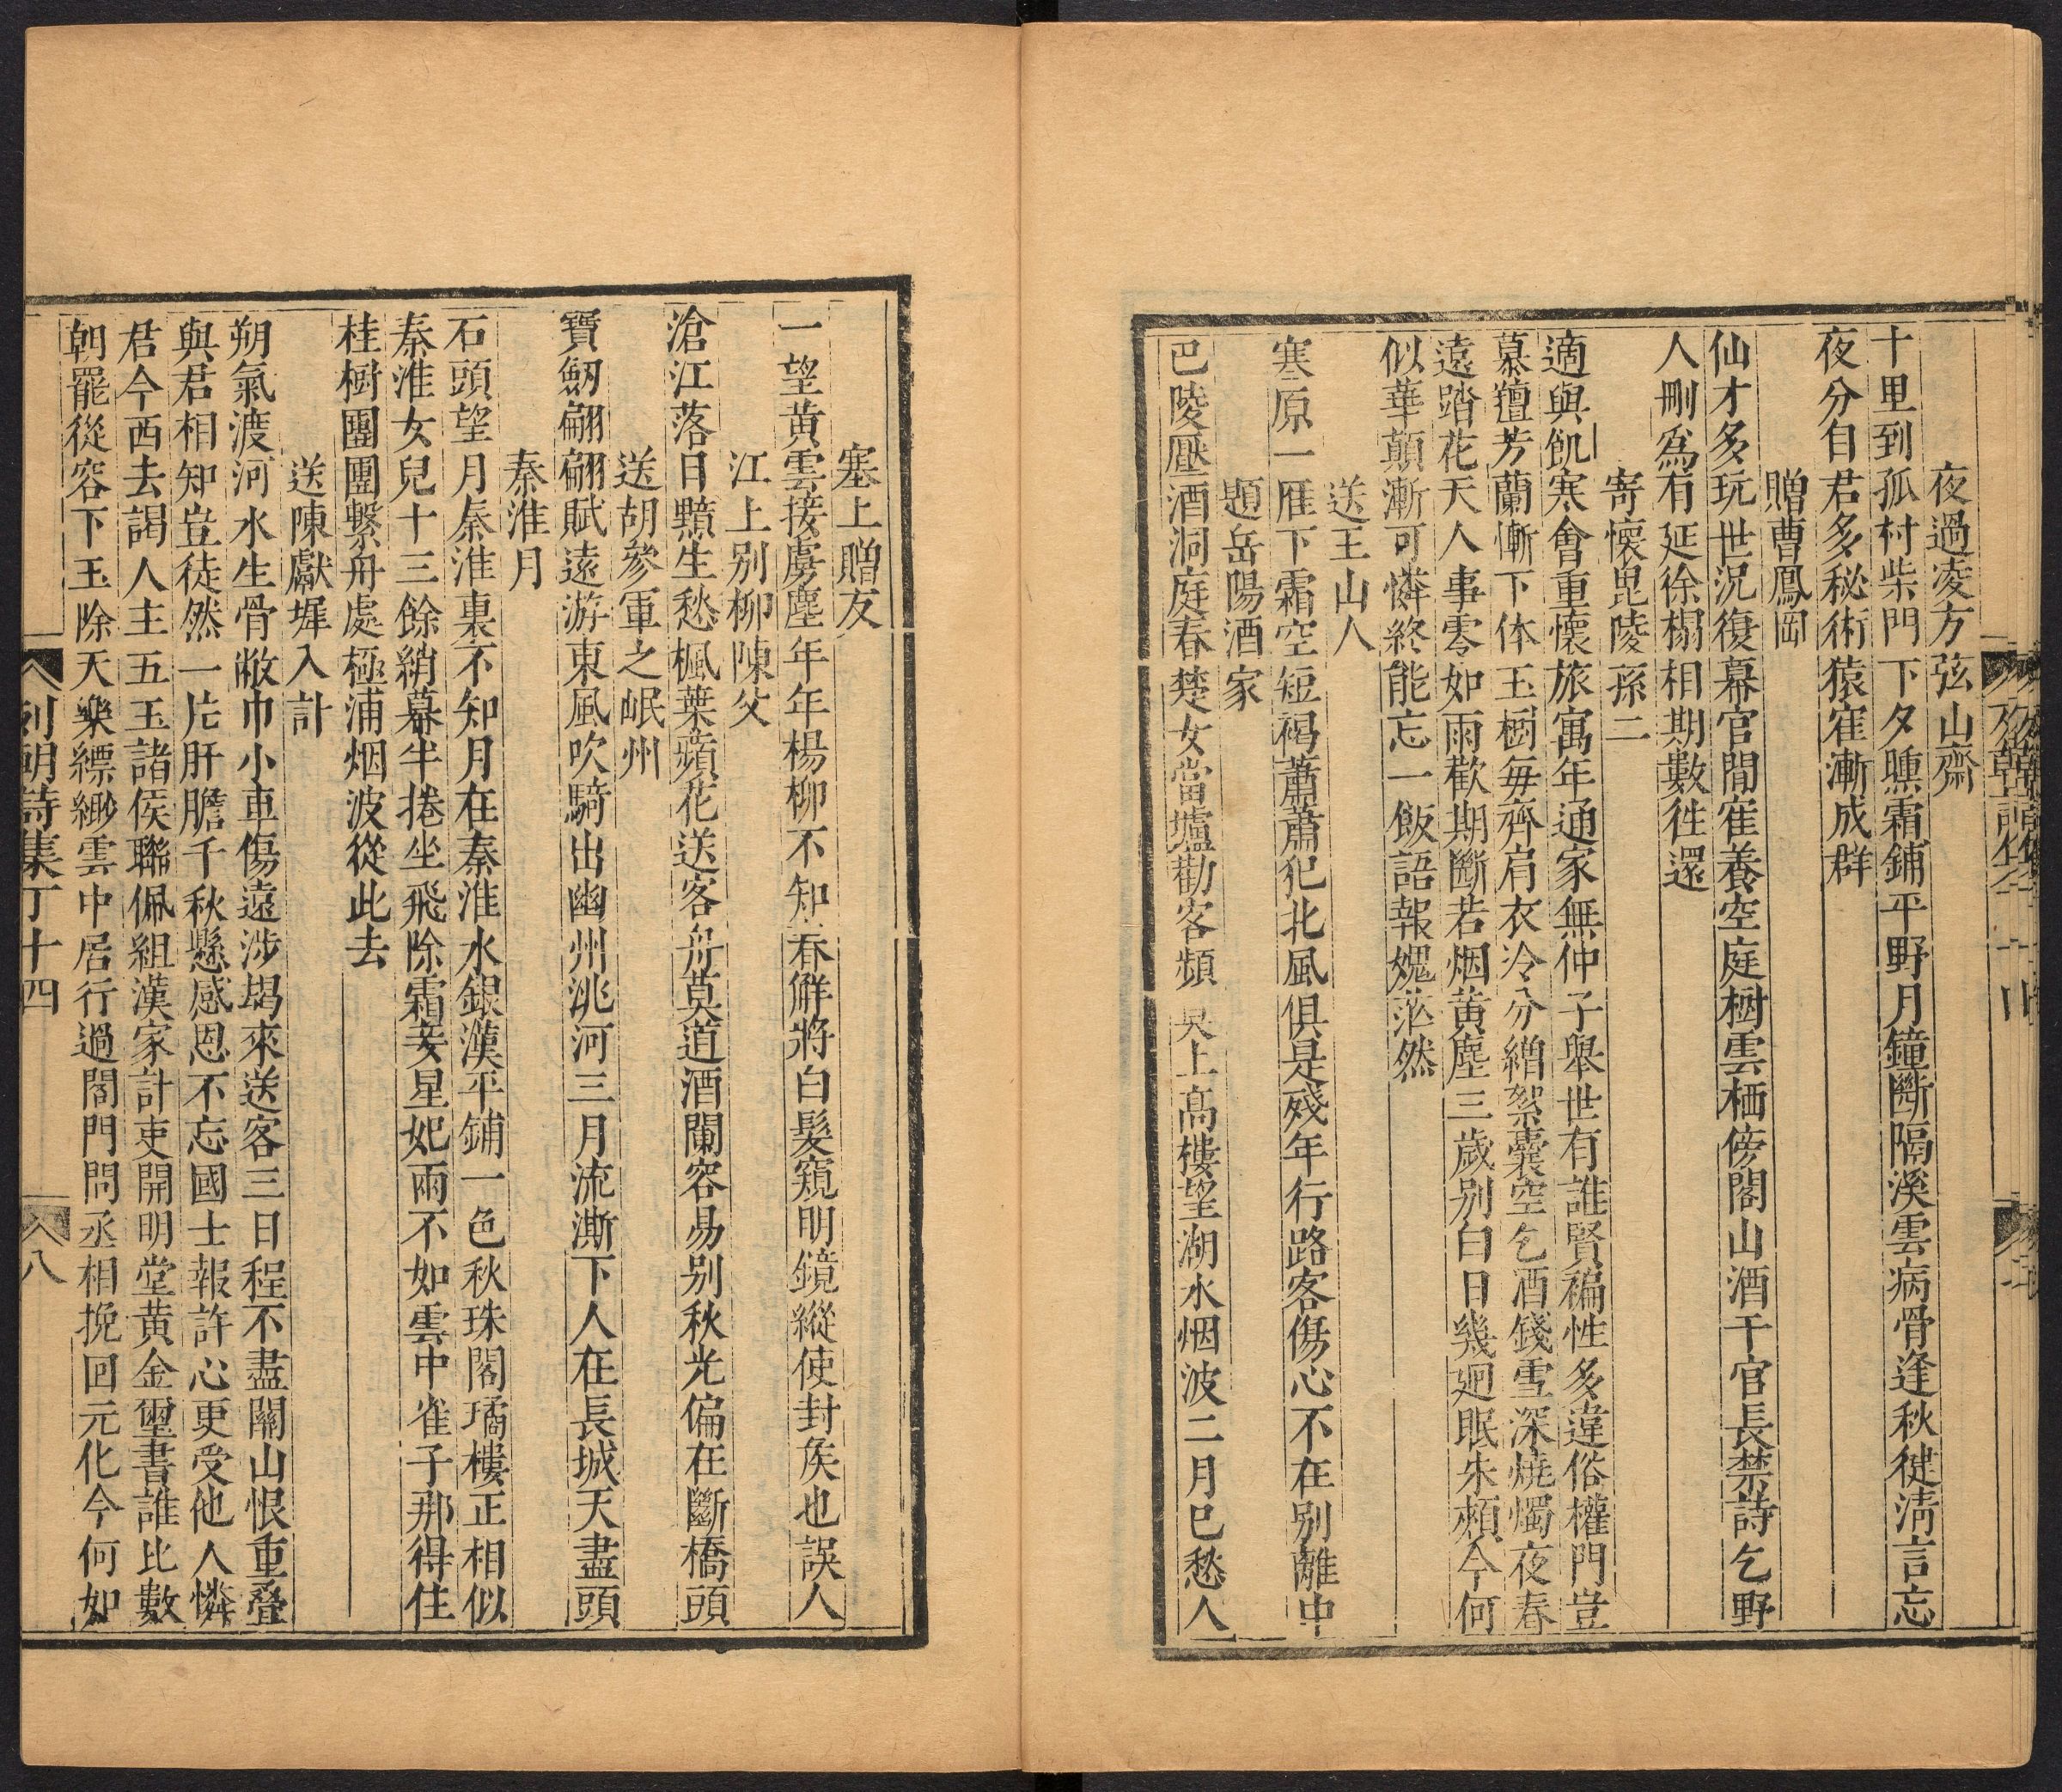 夜過凌方弦山齋
十里到孤村柴門下夕曛霜鋪平野月鐘斷隔溪雲病骨逢秋健淸言忘
夜分自君多秘術猿寉漸成群
贈曹鳳岡
仙才多玩世況復幕官閒寉養空庭樹雲栖傍閣山酒干官長禁詩乞野
人刪爲有延徐榻相期數徃還
寄懷毘陵孫二
適與飢寒會重懷旅寓年通家無仲子舉世有誰賢褊性多違俗權門豈
慕羶芳蘭慚下体玉樹每齊肩衣冷分繒絮囊空乞酒錢雪深燒燭夜春
遠踏花天人事零如雨歡期斷若烟黃塵三歲別白日幾廻眠朱頰今何
似華顛漸可憐終能忘一飯語報媿茫然
送王山人
寒原一雁下霜空短褐蕭蕭犯北風俱是殘年行路客傷心不在別離中
題岳陽酒家
巴陵壓酒洞庭春楚女當壚勸客頻 上高樓望湖水烟波二月巳愁人
塞上贈友
一望黃雲接虜塵年年楊柳不知春鮮將白髮窺明鏡縱使封矦也誤人
江上別柳陳父
滄江落日黯生愁楓葉蘋花送客舟莫道酒闌容易別秋光偏在斷橋頭
送胡參軍之岷州
寶劒翩翩賦遠游東風吹騎出幽州洮河三月流澌下人在長城天盡頭
秦淮月
石頭望月秦淮裏不知月在秦淮水銀漢平鋪一色秋珠閣璚樓正相似
秦淮女兒十三餘綃幕半捲坐飛除霜妾星妃兩不如雲中雀子那得住
桂樹團團繫舟處極浦烟波從此去
送陳獻墀入計
朔氣渡河水生骨敝巾小車傷遠涉朅來送客三日程不盡關山恨重疊
與君相知豈徒然一片肝膽千秋懸感恩不忘國士報許心更受他人憐
君今西去謁人主五玉諸侯聯佩組漢家計吏開明堂黃金璽書誰比數
朝罷從容下玉除天樂縹緲雲中居行過閤門問丞相挽回元化今何如
列朝詩集丁十四
八